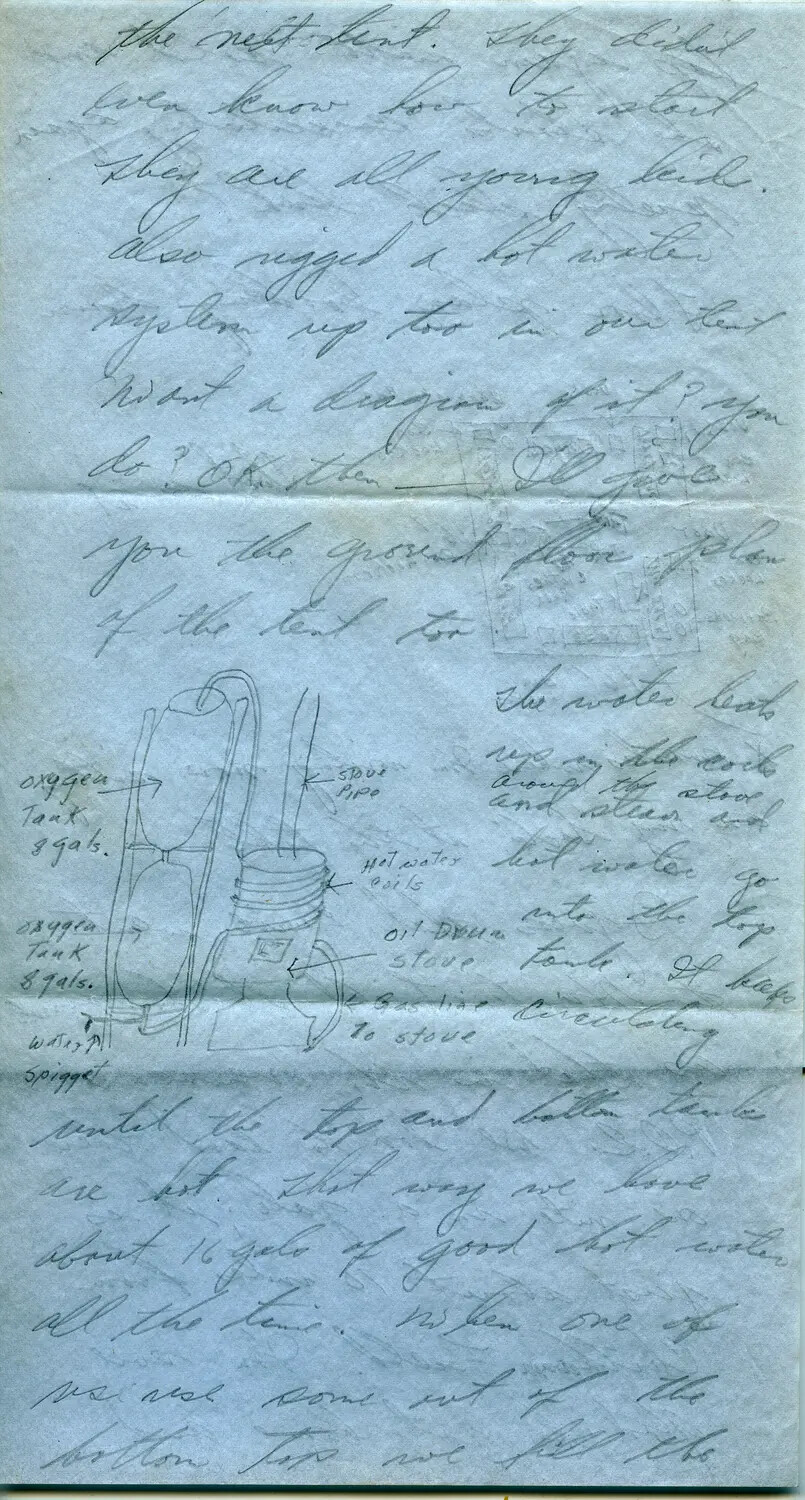 the next tent. They didn't
even know how to start
They are all young kid.
also rigged a hot water
system up too in our tent
Want a diagram of it? you
do? OK. then — I'll give
you the ground floor plan
of the tent too
The water heats
up in the coils
around the stove
and steam and
hot water go
into the top
tank. It keeps
circulating
oxygen
Tank
8 gals.
stove
Pipe
Hot water
coils
oxygen
Tank
8 gals.
oil Drum
stove
Gas line
To stove
water
spigget
until the top and bottom tanks
are hot. That way we have
about 16 gals of good hot water
all the time. When one of
us use some out of the
bottom tap we fill the